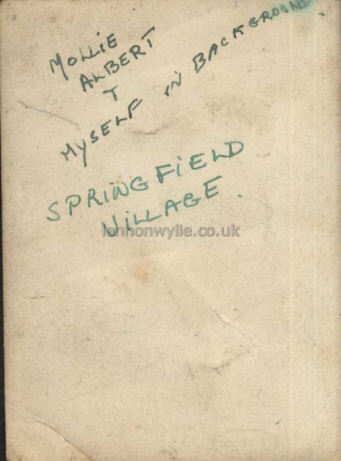 MOLLIE
ALBERT
T
MYSELF IN BACKGROUND
SPRINGFIELD
VILLAGE.
lennonwylie.co.uk